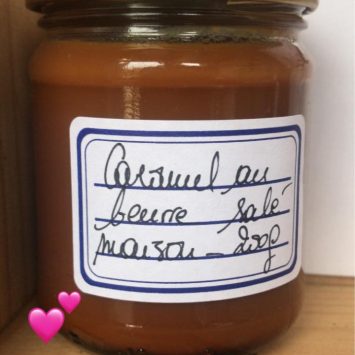 Caramel au
beurre salé
maison - 200g